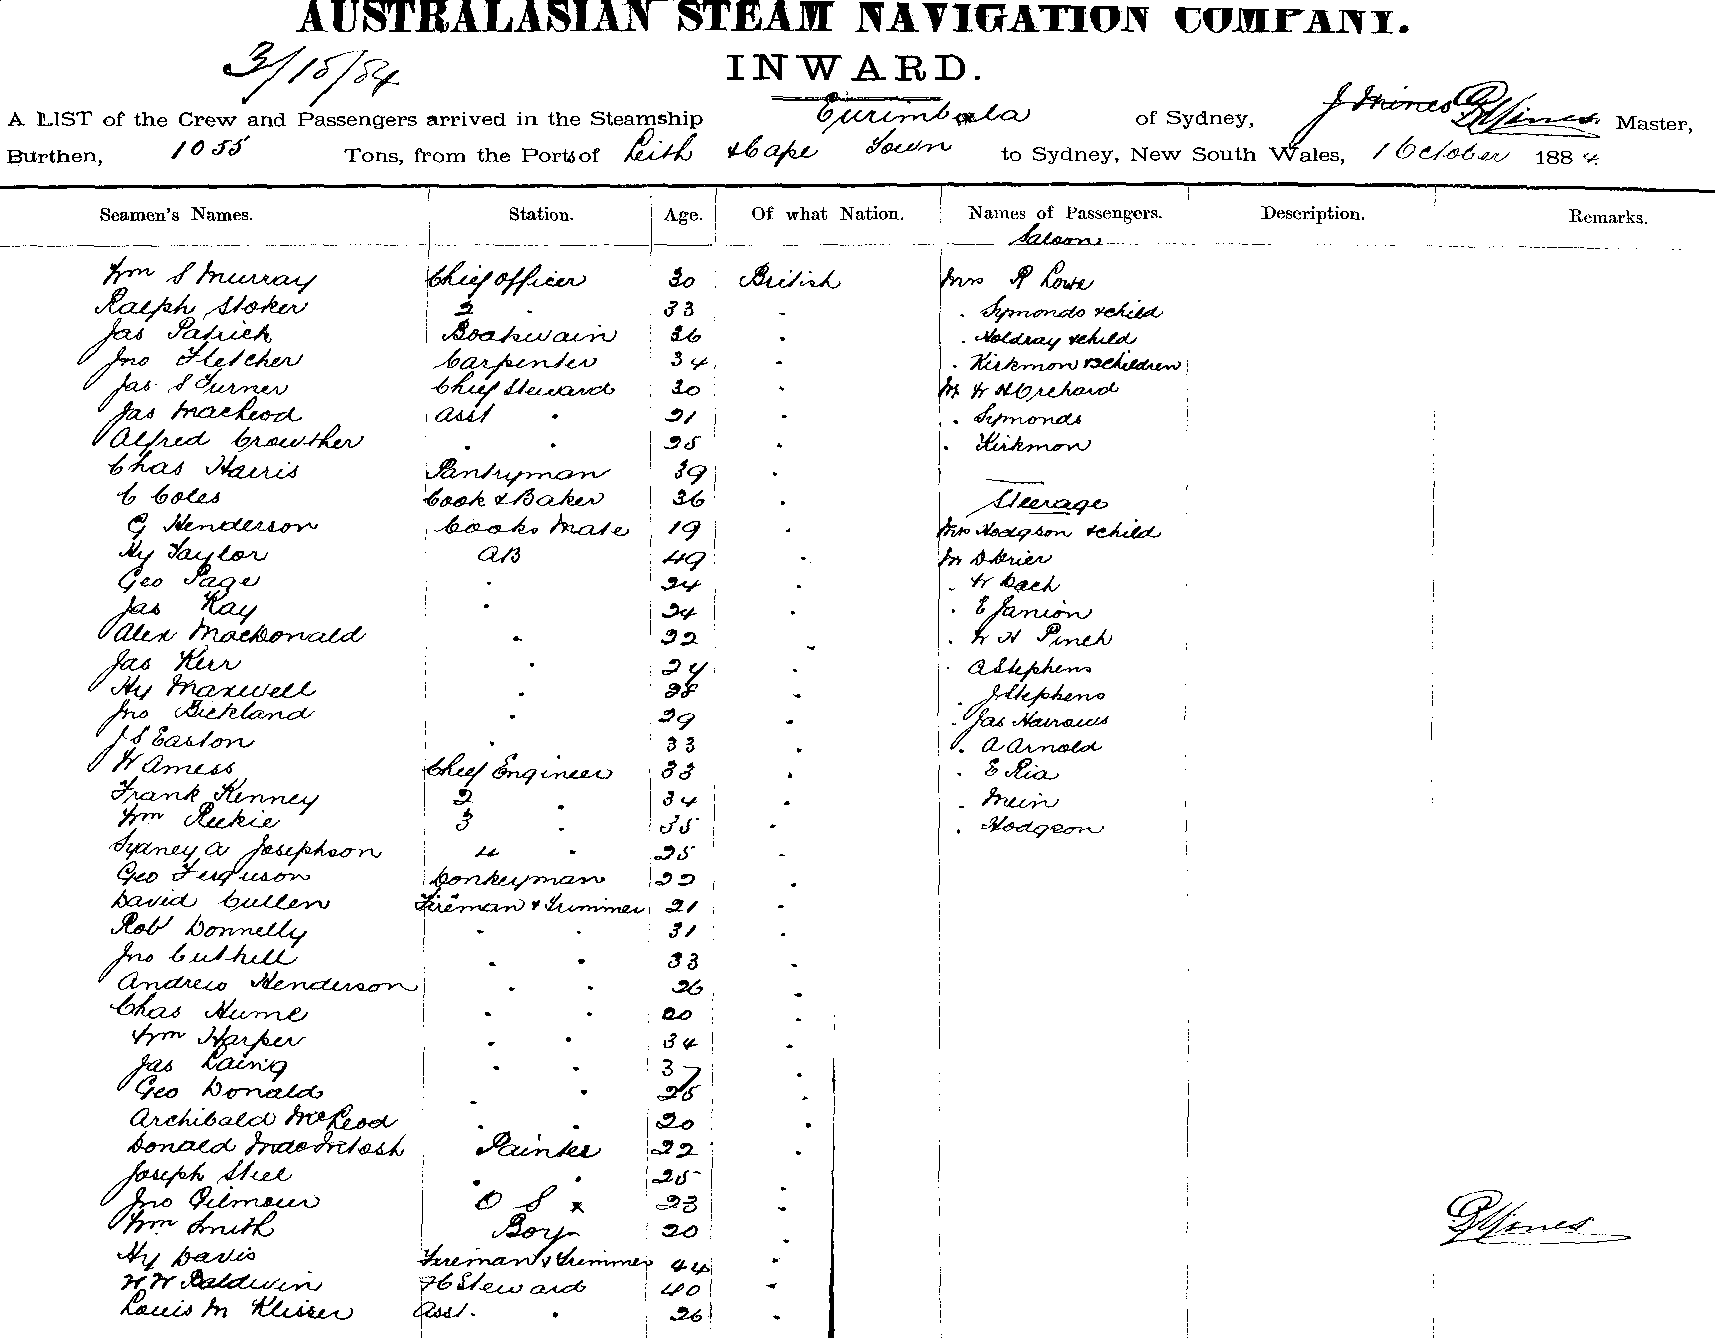 AUSTRALASIAN STEAM NAVIGATION COMPANY.
3/10/84
INWARD.
A LIST of the Crew and Passengers arrived in the Steamship Eurimbala of Sydney, Master,
Burthen, 1055 Tons, from the Ports of Leith & Cape Town to Sydney, New South Wales, 1 October 1884
Seamen's Names. Station. Age. Of what Nation. Names of Passengers. Description. Remarks.
Saloon
Wm S Murray Chief Officer 30 British Mrs R Lowe
Ralph Stoker 2 " 33 " " Symonds & child
Jas Patrick Boatswain 36 " " Holdray & child
Jno Fletcher Carpenter 34 " " Kirkmon & 3 children
Jas S Turner Chief Steward 30 " Mr W H Orchard
Jas MacLeod Asst " 21 " " Symonds
Alfred Crowther " " 25 " " Kirkmon
Chas Harris Pantryman 39 "
C Coles Cook & Baker 36 " Steerage
G Henderson Cooks Mate 19 " Mrs Hodgson & child
Hy Taylor AB 49 " Mr D Brier
Geo Page " 24 " " W Dach
Jas Kay " 24 " " E Janion
Alex MacDonald " 32 " " W H Pinch
Jas Kerr " 24 " " A Stephens
Hy Maxwell " 28 " " J Stephens
Jno Bickland " 29 " " Jas Harrows
J S Easton " 33 " " A Arnold
W Amess Chief Engineer 33 " " E Ria
Frank Kenney 2 " 34 " " Mein
Wm Reekie 3 " 35 " " Hodgson
Sydney A Josephson 4 " 25 "
Geo Ferguson Donkeyman 22 "
David Cullen Fireman & Trimmer 21 "
Rob Donnelly " " 31 "
Jno Cuthill " " 33 "
Andrew Henderson " " 26 "
Chas Hume " " 20 "
Wm Harper " " 34 "
Jas Laing " " 37 "
Geo Donald " " 25
Archibald McLeod " " 20 "
Donald MacIntosh Painter 22 "
Joseph Steel " " 25 "
Jno Gilmour O S 23 "
Wm Smith Boy 20 "
Hy Davis Fireman & Trimmer 44 "
W W Baldwin Steward 40 "
Louis M Klisser Asst. " 26 "